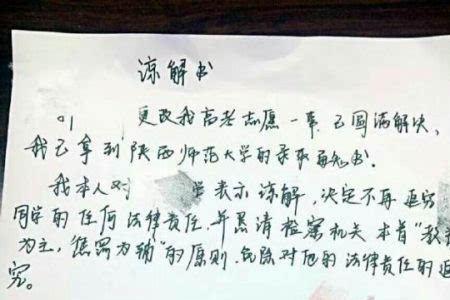 谅解书
更改我高考志愿一事,已圆满解决,
我已拿到陕西师范大学的录取通知书。
我本人对 学表示谅解,决定不再追究
同学的任何法律责任,并恳请检察机关本着“教
为主,惩罚为辅”的原则,免除对他的法律责任的追
究。